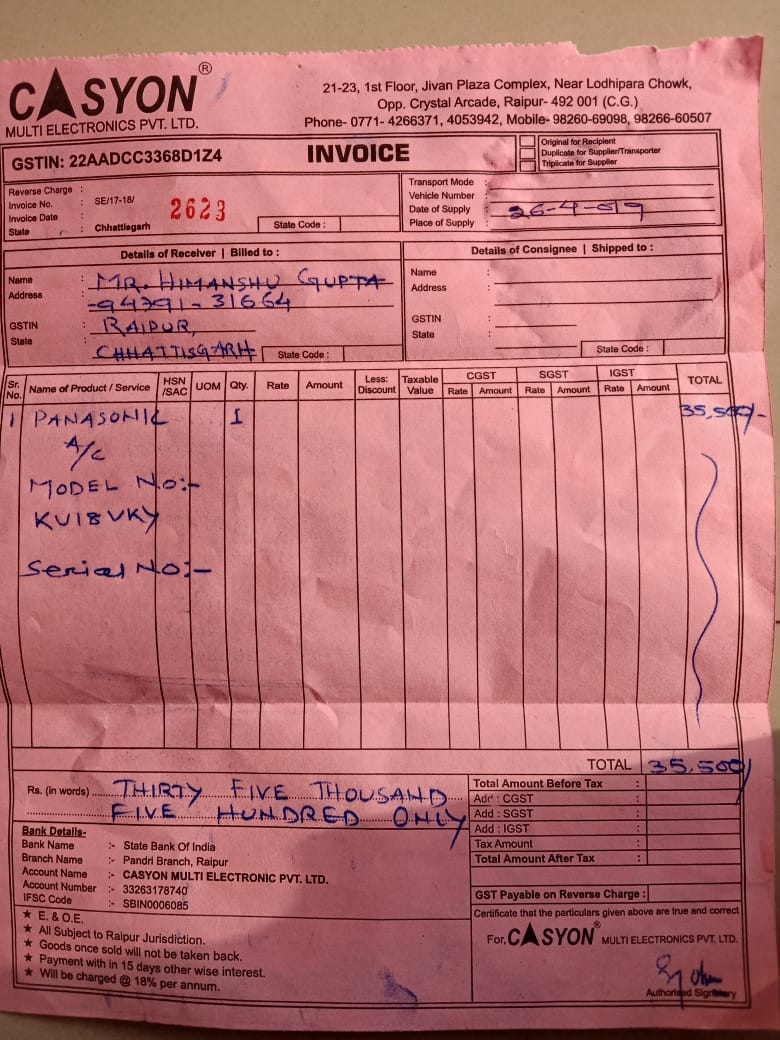 CASYON®
MULTI ELECTRONICS PVT. LTD.
21-23, 1st Floor, Jivan Plaza Complex, Near Lodhipara Chowk,
Opp. Crystal Arcade, Raipur- 492 001 (C.G.)
Phone- 0771- 4266371, 4053942, Mobile- 98260-69098, 98266-60507
GSTIN: 22AADCC3368D1Z4
INVOICE
Original for Recipient
Duplicate for Supplier/Transporter
Triplicate for Supplier
Reverse Charge :
Invoice No. : SE/17-18/ 2623
Invoice Date :
State : Chhattisgarh State Code :
Transport Mode :
Vehicle Number :
Date of Supply : 26-4-019
Place of Supply :
Details of Receiver | Billed to :
Name : MR. HIMANSHU GUPTA
Address : -94791-31664
GSTIN : RAIPUR,
State : CHHATTISGARH State Code :
Details of Consignee | Shipped to :
Name :
Address :
GSTIN :
State :
State Code :
Sr. No. Name of Product / Service HSN /SAC UOM Qty. Rate Amount Less: Discount Taxable Value CGST Rate Amount SGST Rate Amount IGST Rate Amount TOTAL
1 PANASONIC 1 35,500/-
A/C
MODEL NO:-
KU18VKY
Serial No:-
TOTAL 35,500/
Rs. (in words) THIRTY FIVE THOUSAND
FIVE HUNDRED ONLY
Total Amount Before Tax :
Add : CGST :
Add : SGST :
Add : IGST :
Tax Amount :
Total Amount After Tax :
GST Payable on Reverse Charge :
Bank Details-
Bank Name :- State Bank Of India
Branch Name :- Pandri Branch, Raipur
Account Name :- CASYON MULTI ELECTRONIC PVT. LTD.
Account Number :- 33263178740
IFSC Code :- SBIN0006085
★ E. & O.E.
★ All Subject to Raipur Jurisdiction.
★ Goods once sold will not be taken back.
★ Payment with in 15 days other wise interest.
★ Will be charged @ 18% per annum.
Certificate that the particulars given above are true and correct
For, CASYON® MULTI ELECTRONICS PVT. LTD.
Authorised Signatory